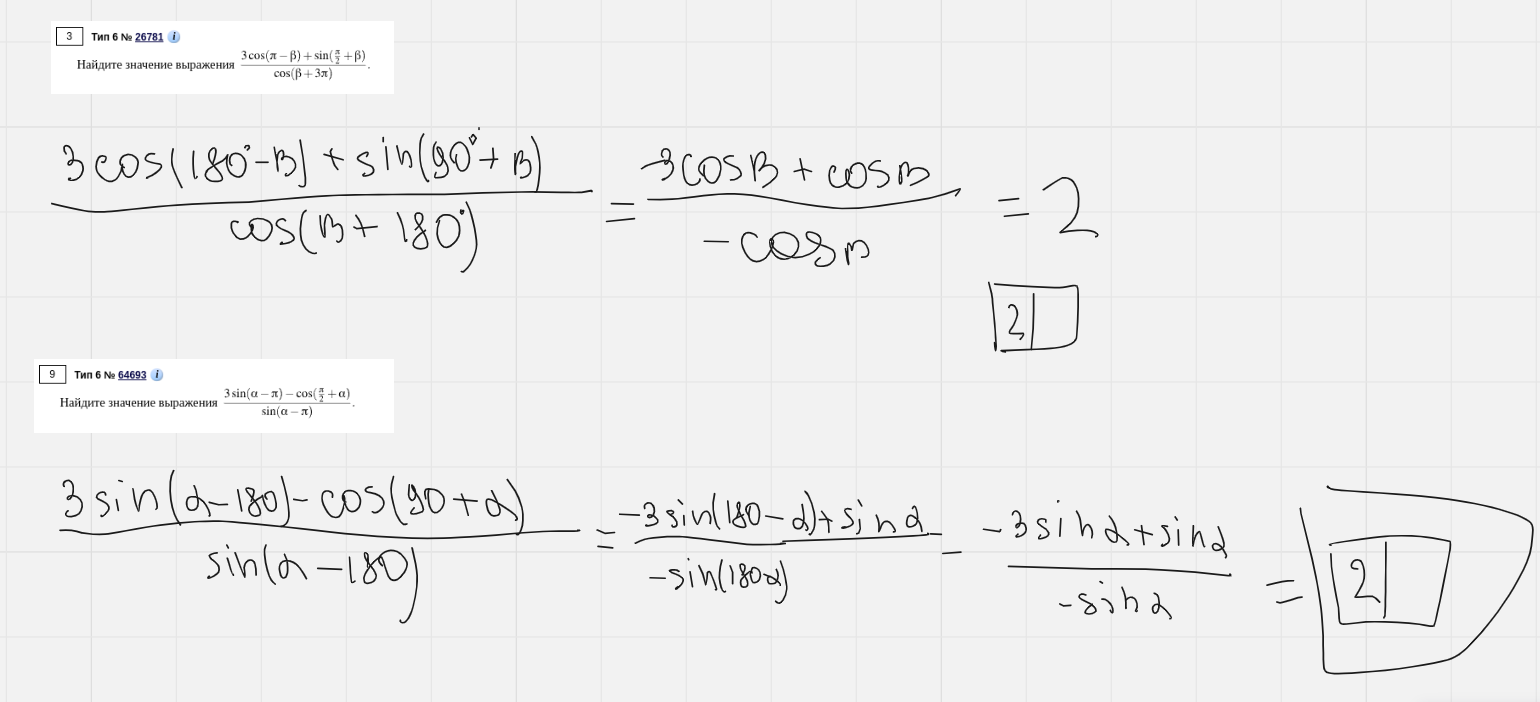 3 Тип 6 № 26781 i
Найдите значение выражения (3cos(π − β) + sin(π/2 + β))/(cos(β + 3π)).
(3cos(180° − β) + sin(90° + β))/(cos(β + 180°)) = (−3cosβ + cosβ)/(−cosβ) = 2
2
9 Тип 6 № 64693 i
Найдите значение выражения (3sin(α − π) − cos(π/2 + α))/(sin(α − π)).
(3sin(α − 180) − cos(90 + α))/(sin(α − 180)) = (−3sin(180 − α) + sinα)/(−sin(180-α)) = (−3sinα + sinα)/(−sinα) = 2